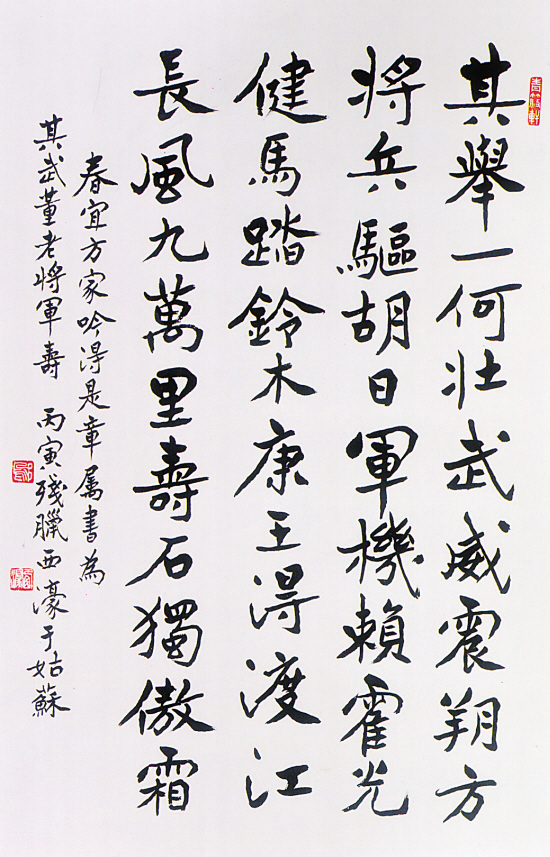 其舉一何壯武威震朔方
將兵驅胡日軍機賴霍光
健馬踏鈴木康王淂渡江
長風九萬里壽石獨傲霜
春宜方家吟淂是章属書為
其武董老將軍壽 丙寅殘臘西濠于姑蘇